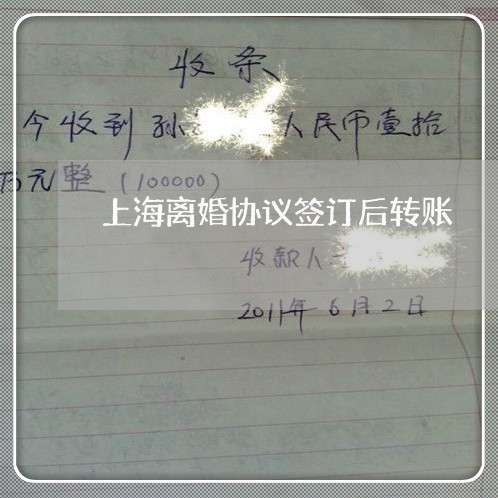 收条
今收到孙 人民币壹拾
万元整(100000)
上海离婚协议签订后转账
收款人
2011年6月2日